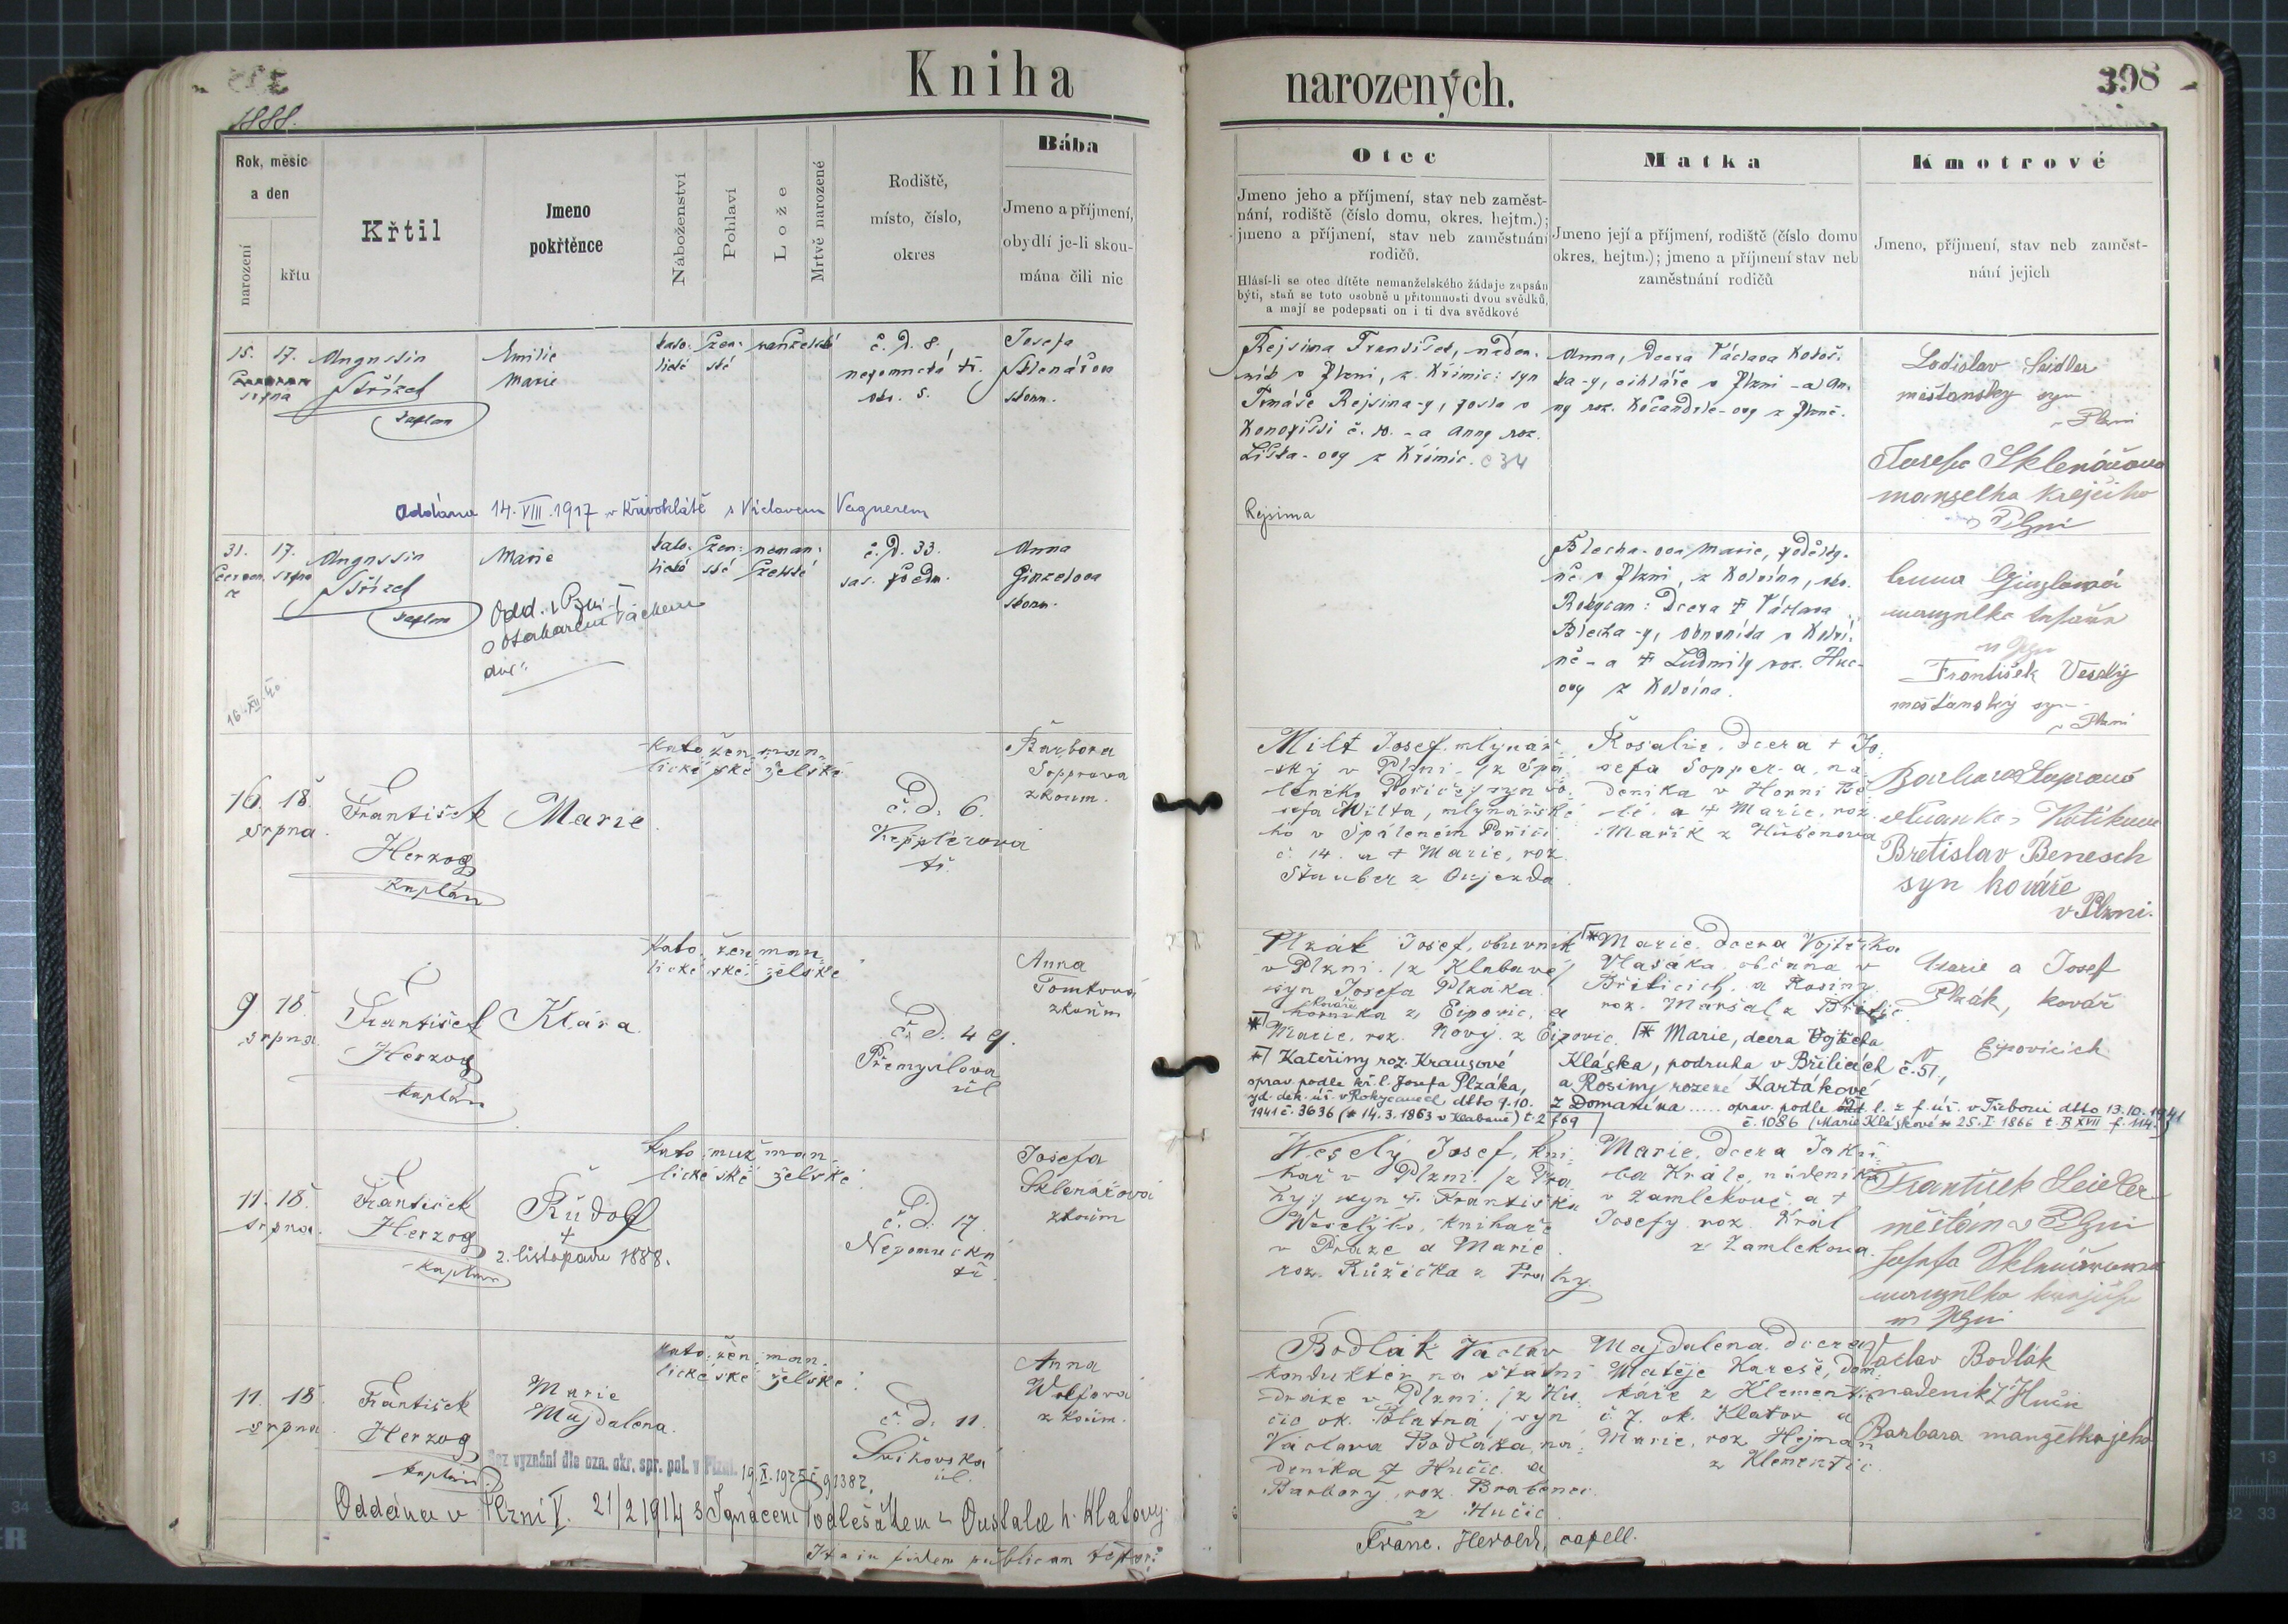 Kniha narozených.
398
1888.
Rok, měsíc
a den
narození
křtu
Křtil
Jmeno
pokřtěnce
Náboženství
Pohlaví
Lože
Mrtvě narozené
Rodiště,
místo, číslo,
okres
Bába
Jmeno a příjmení,
obydlí je-li skou-
mána čili nic
Otec
Jmeno jeho a příjmení, stav neb zaměst-
nání, rodiště (číslo domu, okres. hejtm.);
jmeno a příjmení, stav neb zaměstnání
rodičů.
Hlásí-li se otec dítěte nemanželského žádaje zapsán
býti, staň se toto osobně u přítomnosti dvou svědků,
a mají se podepsati on i ti dva svědkové
Matka
Jmeno její a příjmení, rodiště (číslo domu
okres. hejtm.); jmeno a příjmení stav neb
zaměstnání rodičů
Kmotrové
Jmeno, příjmení, stav neb zaměst-
nání jejich
15. 17.
srpna
Augustin
Střízek
kaplan
Emilie
Marie
kato- žen- manželské
lické ské
č. d. 8.
nepomucká tř.
Josefa
Sklenářova
zkoum.
Rejsima František, náden-
ník v Plzni, z Křimic: syn
Tomáše Rejsima-y,
č. 10. - a Anny roz.
Liška-ovy z Křimic. č 34
Rejsima
Anna, dcera Václava
ka-y, cihláře v Plzni - a An-
ny roz.
Ladislav Seidler
měšťansky syn
v Plzni
Josefa Sklenářova
manželka krejčiho
v Plzni
Oddána 14. VIII. 1917 v Křivoklátě s Václavem Vagnerem
31. 17.
červen- srpna
Augustin
Střízek
kaplan
Marie
kato- žen- neman-
lické ské želské
č. d. 33.
sas. předm.
Anna
Ginzelova
zkoum.
Odd. v Plzni I
s Otakarem Váchem
16. XII. 40
Blecha-ova Marie,
v Plzni, z Kolvína, okr.
Rokycan: dcera † Václava
Blecha-y, v Kolví-
ně - a † Ludmily roz. Huc-
ovy z Kolvína.
Anna Ginzlová
manželka
v Plzni
František Veselý
měšťanský syn
v Plzni
16. 18.
srpna.
František
Herzog
kaplán
Marie
kato- žen- man-
lické ské želské
č. d. 6.
Kepplerova
tř.
Barbora
Sopprova
zkoum.
Milt Josef mlynář-
ský v Plzni /z Spá-
leného Poříčí/ syn Jo-
sefa Milta, mlynářské-
ho v Spáleném Poříčí
č. 14. a † Marie, roz.
Štauber z Oujezda.
Rosalie, dcera † Jo-
sefa Sopper-a, ná-
deníka v Horní Bě-
lé. a † Marie, roz.
Mařík z Hubenova
Bretislav Benesch
syn kováře
v Plzni.
9 18.
srpna.
František
Herzog
kaplán
Klára
kato- žen- man-
lické ské želské
č. d. 49.
Přemyslova
ul
Anna
Tomková
zkoum
Plzák Josef, obuvník
v Plzni. /z Klabavé/
syn Josefa Plzáka.
kováře
horníka z Ejpovic, a
* Marie, roz. Nový z Ejpovic.
* Kateřiny roz. Krausové
oprav. podle kř. l. Josefa Plzáka,
vyd. dek. úř. v Rokycanech dtto 9.10.
1941 č. 3636 (* 14.3.1863 v Klabavě) t. 2 f 69
* Marie, dcera Vojtěcha
Vlasáka, občana v
Břilicích, a Rosiny
roz. Maršal z Břilic.
* Marie, dcera Vojtěcha
Kláska, podruha v Břilicích č. 51,
a Rosiny rozené Kartákové
z Domanína ..... oprav. podle l. z f. úř. v Třeboni dtto 13.10.1941
č. 1086 (Marie Klásková * 25. I. 1866 t. B XVII f. 114)
Marie a Josef
Plzák, kovář
v Ejpovicích
11. 18.
srpna.
František
Herzog
kaplan
Rudolf
†
2. listopadu 1888.
kato- muž- man-
lické ské želské
č. d. 17.
Nepomucká
tř.
Josefa
Sklenářová
zkoum
Weselý Josef, kni-
hař v Plzni /z Pra-
hy/ syn †. Františka
Weselýho, knihaře
v Praze a Marie
roz. Růžička z Prahy
Marie, dcera Jaku-
ba Krále, nádeníka
v Zamlekově, a †
Josefy roz. Král
z Zamlekova.
František Seidler
měšťan v Plzni
Josefa Sklenářowa
manželka krejčiho
v Plzni
11. 18.
srpna
František
Herzog
kaplán
Marie
Majdalena.
kato- žen- man-
lické ské želské
č. d. 11.
Švihovská
ul.
Anna
Wolfová
zkoum.
Bodlák Václav
konduktér na státní
dráze v Plzni. /z Hu-
čic ok. Blatná/ syn
Václava Bodláka, ná-
deníka z Hučic. a
Barbory, roz. Brabenec
z Hučic
Majdalena, dcera
Matěje Kareše, dom-
káře z Klementic
č. 7. ok. Klatov a
Marie, roz Hejman
z Klementic
Vaclav Bodlák
nadenik z Hučic
Barbara manzelka jeho
Bez vyznání dle ozn. okr. spr. pol. v Plzni. 19. X. 1925 č. 91387.
Oddána v Plzni V. 21/2 1914 s Ignácem Podlešákem z Oustalce h. Klatovy.
Ita in fidem publicam testor:
Franc. Herold, capell.